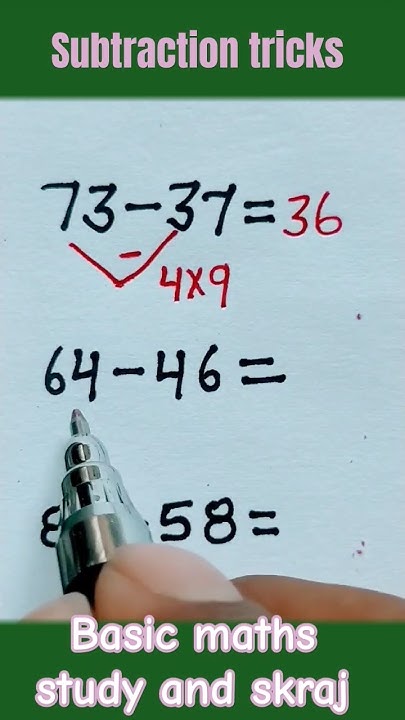 Subtraction tricks
73-37=36
- 4x9
64-46=
-58=
Basic maths
study and skraj